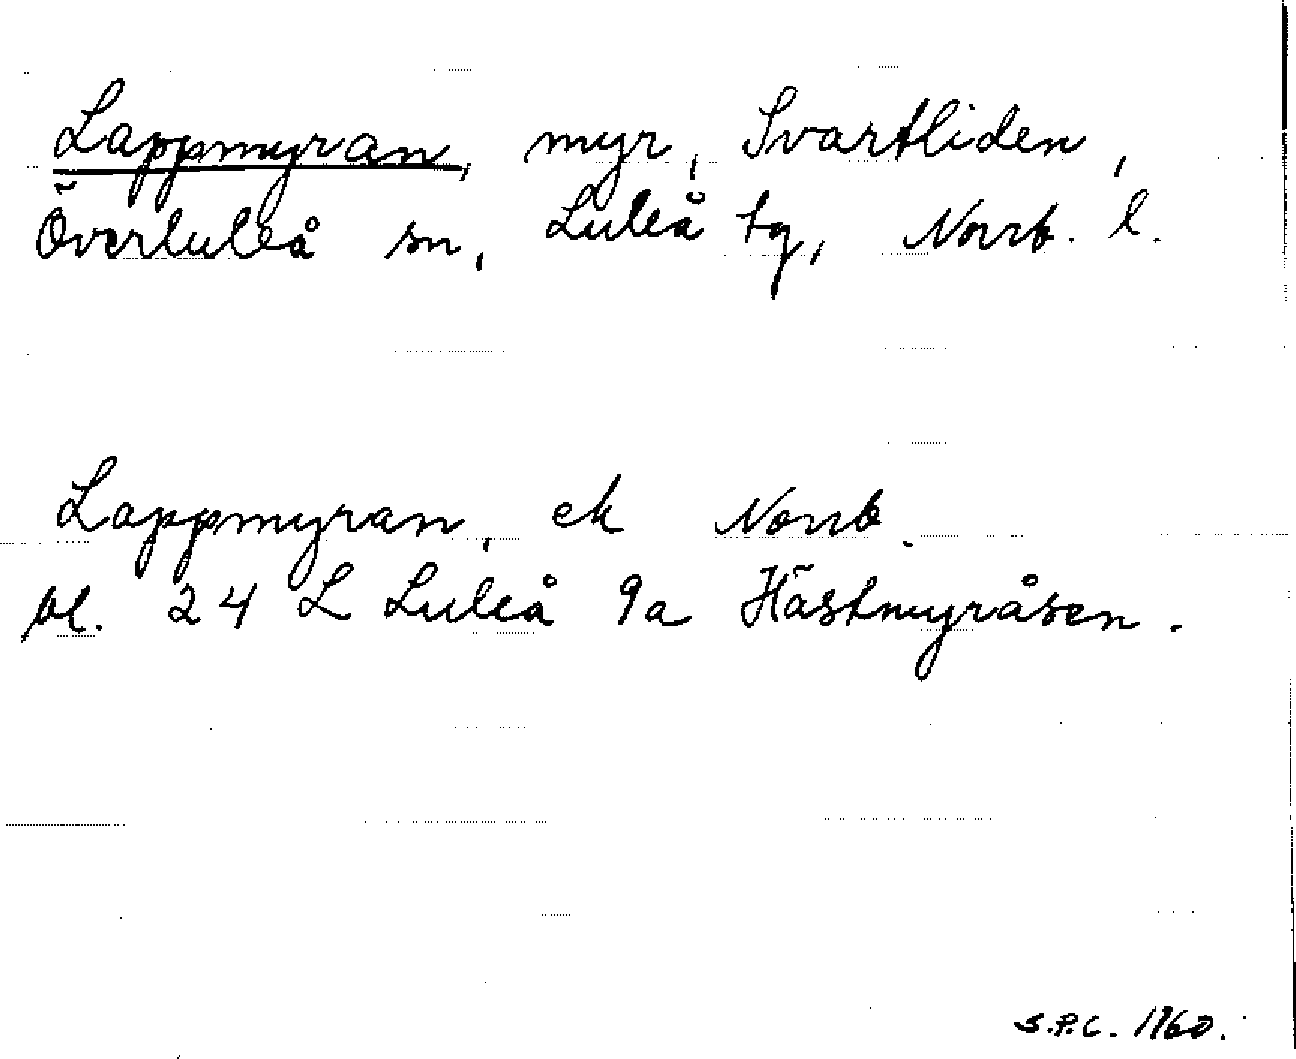 Lappmyran, myr, Svartliden,
Överluleå sn, Luleå tg, Norrb. l.
Lappmyran, ek Norrb.
bl. 24 L Luleå 9a Hästmyråsen.
S.P.C. 1960.